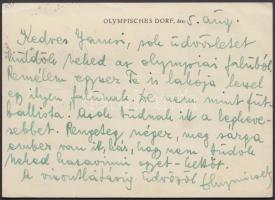 OLYMPISCHES DORF, den 5. aug.
Kedves Jancsi, sok üdvözletet
küldök neked az olympiai faluból
Remélem egyszer Te is lakója leszel
egy ilyen falunak. De nem mint fut-
ballista. Azok tudnak itt a legkeve-
sebbet. Rengeteg néger, meg sárga
ember van itt, kár, hogy nem tudok
neked hazavinni egyet-kettőt.
A viszontlátásig üdvözöl